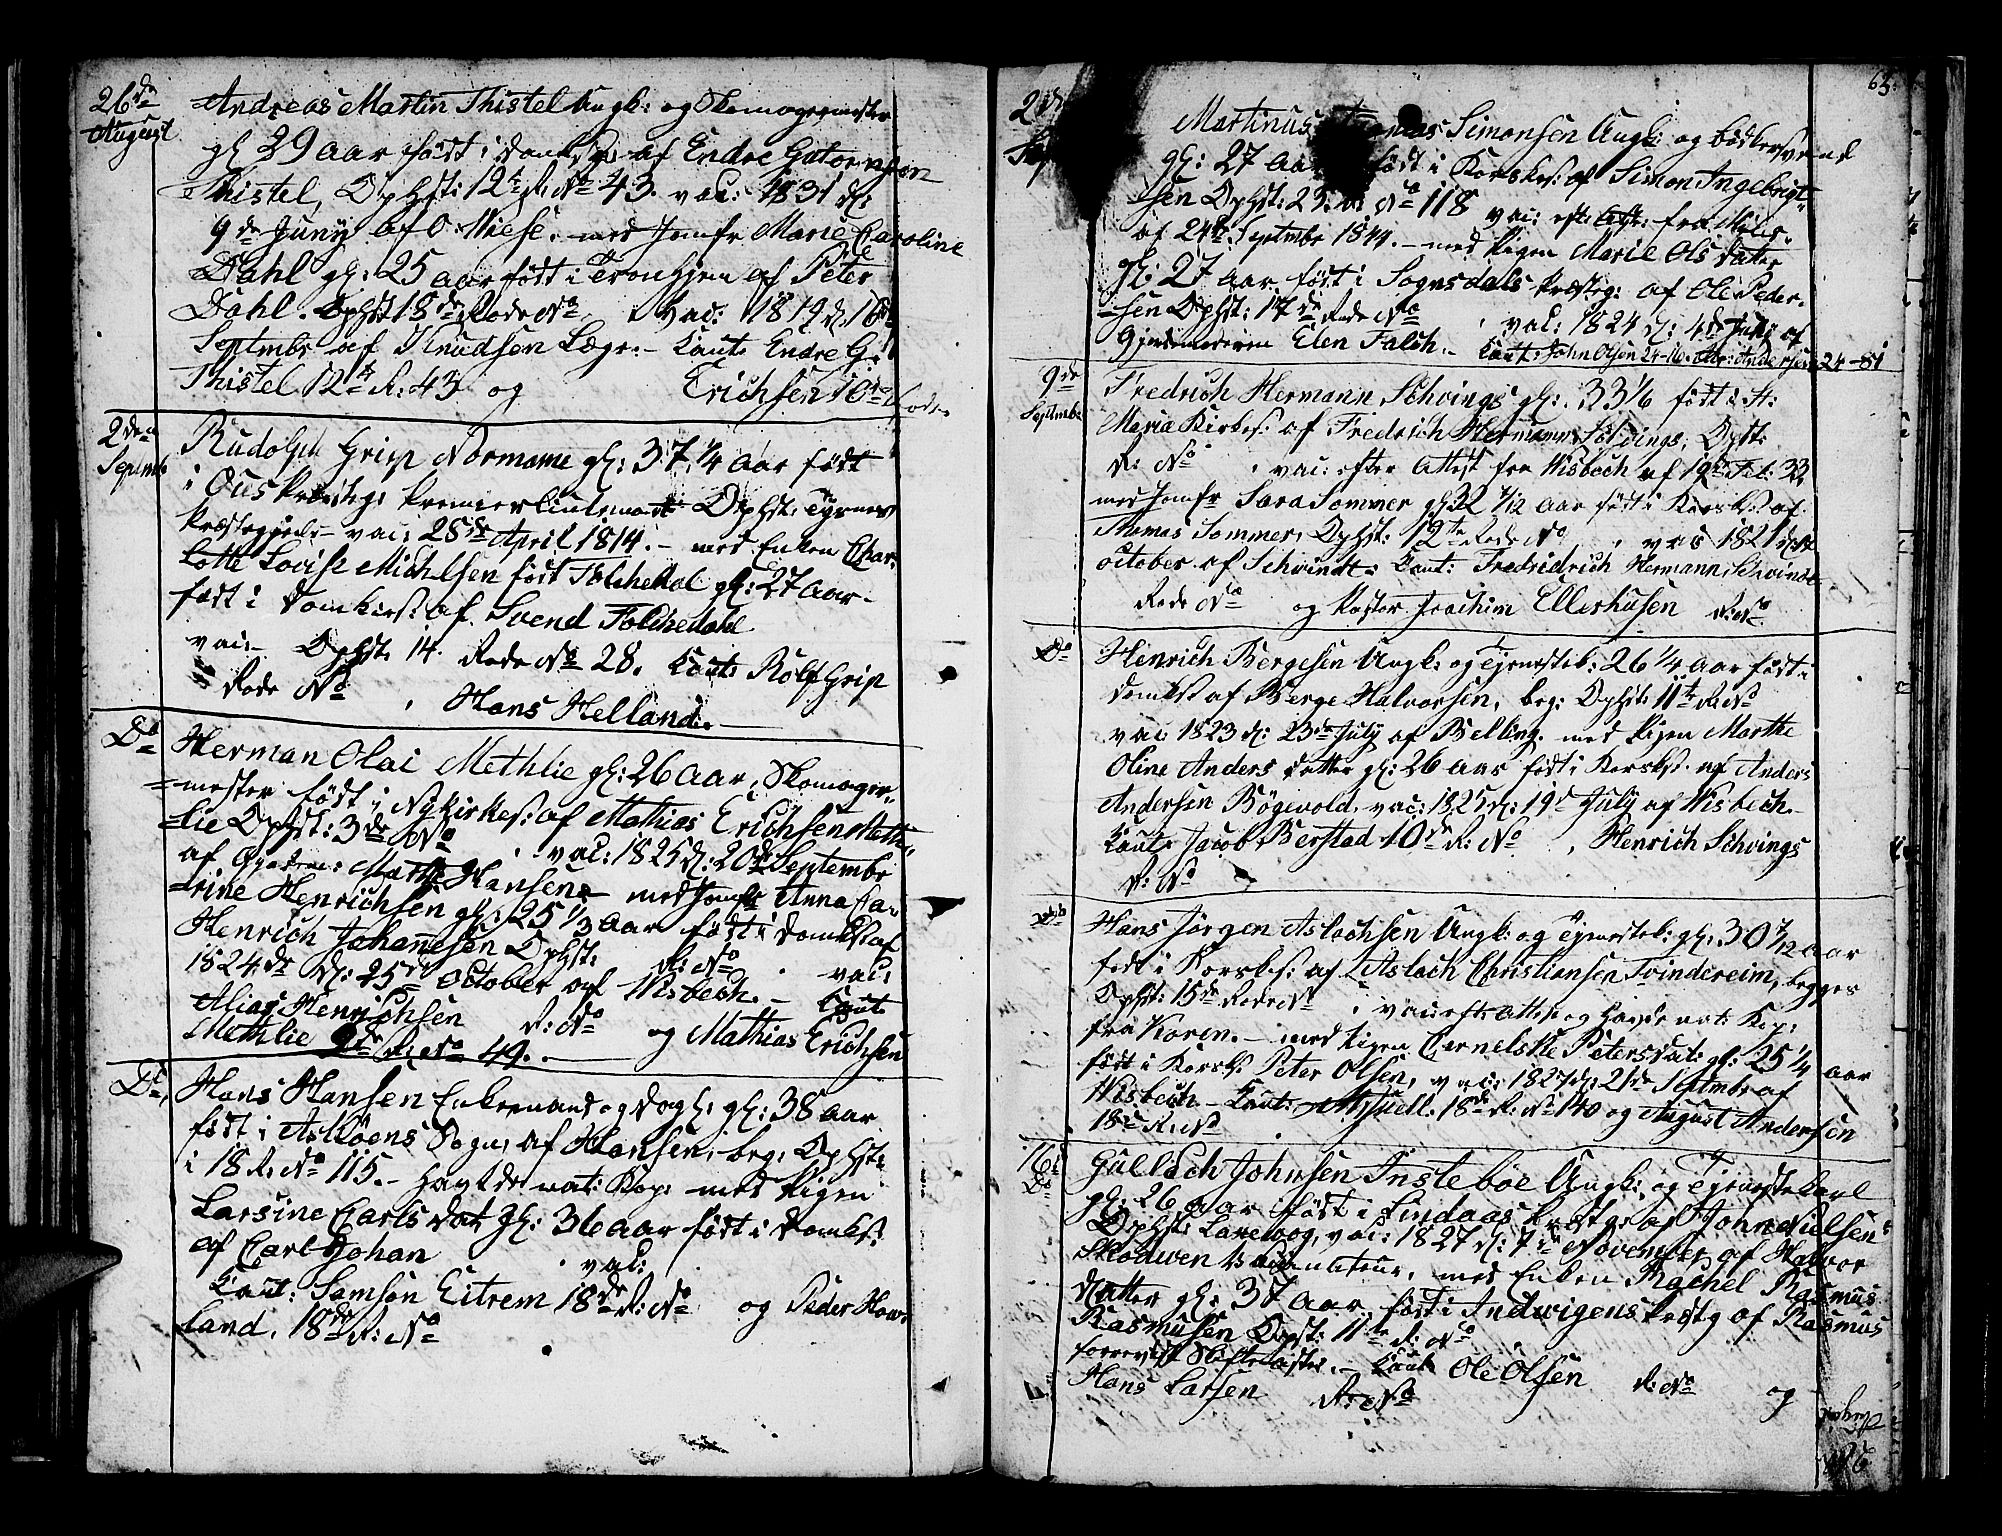 26de
August
Andreas Martin Thistel Ungk: og Skomagermester
gl 29 aar født i Domks: af Endre Gutormsen
Thistel, Ophst: 12te R: No 43. vac: 1831 d:
9de Juny af O Wiese. med Jomfr Marie Caroline
Dahl gl: 25 aar født i Tronhjem af Peter
Dahl. Ophst 18de Rode No . Vac: 1819 d: 16de
Septmbr af Knudsen Læge. Caut: Endre G:
Thistel 12te R: 43 og Erichsen 10de Rode
2den
Septmbr
Rudolph Grip Normann gl: 37 1/4 aar født
i Ous Præsteg: Premierlieutenant Ophst: Tysnes
Præstegjeld vac: 28de April 1814. med Enken Char:
lotte Lovise Michelsen født Folchedal gl: 27 aar
født i Domkirks: af Svend Folchedahl
vac: Ophst: 14 Rode No 28. Caut: Rolf Grip
Rode No , Hans Helland.
Do
Herman Olai Methlie gl: 26 aar, Skomager
mester født i Nykirkes: af Mathias Erichsen Meth
lie Ophst: 3de No . vac: 1825 d: 20de Septembr
af Matth: Hansen med Jomfr Anna Ca
trine Henrichsen gl: 25 1/3 aar født i Domks: af
Henrich Johannesen Ophst: R: No . vac:
1824 d: 25de October af Wisbech. Caut
Elias Henrichsen R: No og Mathias Erichsen
Methlie 9de R: No 49.
Do
Hans Hansen Enkemand og gl: 38 aar
født i Askøens Sogn af Hansen, beg: Ophst:
i 18 R: No 115. havt de nat: Kop: med Pigen
Larsine Carls Dat: gl: 36 aar født i Domks:
af Carl Johan . vac:
Caut: Samson Eitrem 18de R: No og Peder How
land. 18de R: No
65.
2de
Sep
Martinus Simonsen Ungk: og bødkersvend
gl: 27 aar født i Korsks: af Simon Ingebrigt
sen Ophst: 23: R: No 118 vac: eft: Att: fra
af 24de Septmbr 1844. med Pigen Marie Ols Datter
gl: 27 aar født i Sogndals Præsteg: af Ole Peder
sen Ophst: 17de Rode No . vac: 1824 d: 4de July af
Elen Falch. Caut: John Olsen 24-16. Andersen 24-81
9de
Septmbr
Fredrich Hermann Schvings gl: 33 1/6 født i St:
Maria Kirkes: af Fredrich Hermann Schvings, Ophst:
R: No . vac: efter Attest fra Wisbech af 19de Feb: 33
med Jomfr Sara Sommer gl: 32 7/12 aar født i Korsks: af
Thomas Sommer, Ophst: 12te Rode No , vac 1821 d:
October af Schvindt: Caut: Fredridrich Hermann Schvindt
Rode No og Koster Joachim Ellerhusen R: No
Do
Henrich Bergesen Ungk: og Tjenestek: 26 1/4 aar født i
Domks: af Berge Halvorsen, beg: Ophst: 11te R: No
vac: 1823 d: 23de July af Belling. med Pigen Marthe
Oline Anders Datter gl: 26 aar født i Korsks: af Anders
Andersen Bøgevold, vac: 1825 d: 19d July af Wisbech.
Caut: Jacob Berstad 10de R: No , Henrich Schvings
R: No
Do
Hans Jørgen Aslachsen Ungk: og Tjenestek: gl: 30 7/12 aar
født i Korsks: af Aslach Christiansen Tvindereim, begges
Ophst: 15de Rode No , vac: eft: Attest og havde nat: Kop:
fra Koren. med Pigen Cornelske Petersdat: gl: 25 1/4 aar
født i Korsks: Peter Olsen, vac: 1827 d: 21de Septmbr af
Wisbech. Caut: 18de R: No 140 og August Andersen
18de R: No
16de
Do
Gullach Johnsen Instebøe Ungk: og Tjenestekarl
gl: 26 aar født i Lindaas Præstg: af John Nielsen
Ophst: Larevog, vac: 1827 d: 7de November af Halvor
Skodwen Vaccinateur, med Enken Rachel Rasmus
Datter gl: 37 aar født i Indwigens Præstg af Rasmus
Rasmusen Ophst: 11te R: No
forevist Skifteattest. Caut: Ole Olsen R: No og
Hans Larsen R: No